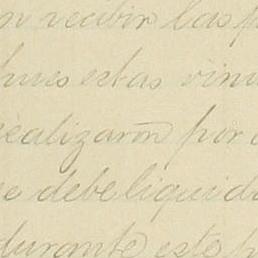 n recibir las p
pues estas vin
realizaron por
se debe liquida
durante este p